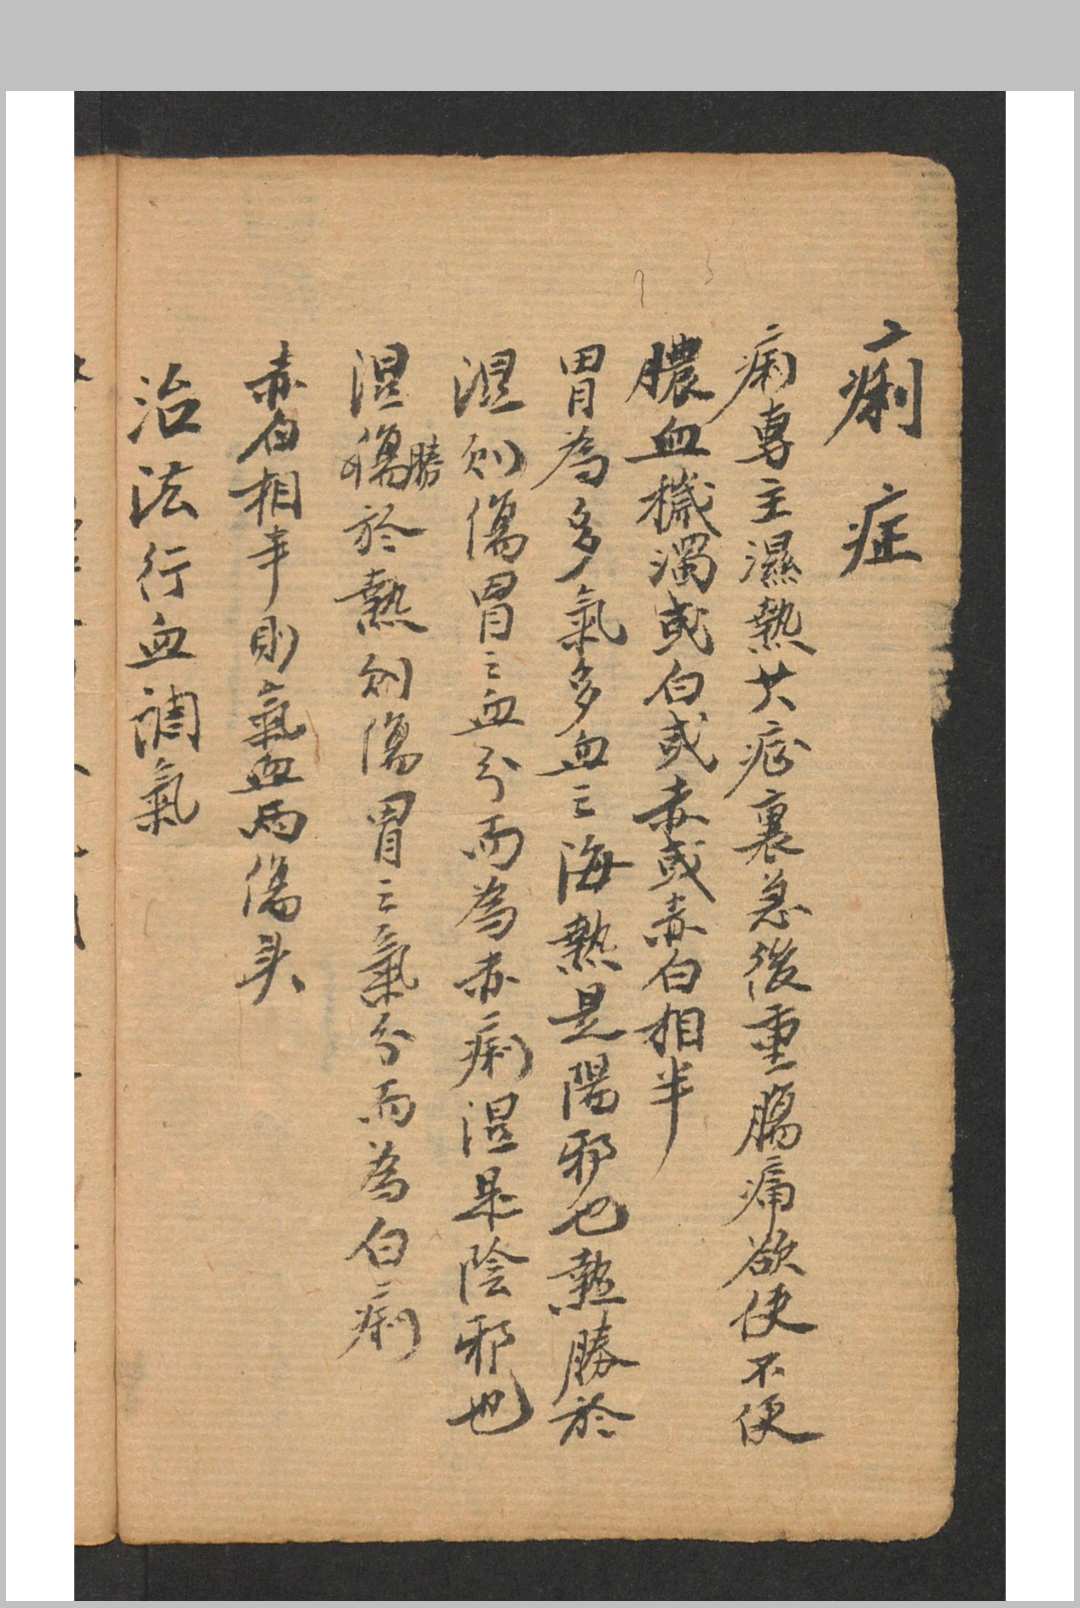 痢症
痢專主濕熱其症裏急後重腸痛欲便不便
膿血穢濁或白或赤或赤白相半
胃為多氣多血之海熱是陽邪也熱勝於
湿則傷胃之血分而為赤痢湿是陰邪也
湿傷勝於熱則傷胃之氣分而為白痢
赤白相半則氣血兩傷矣
治法行血調氣